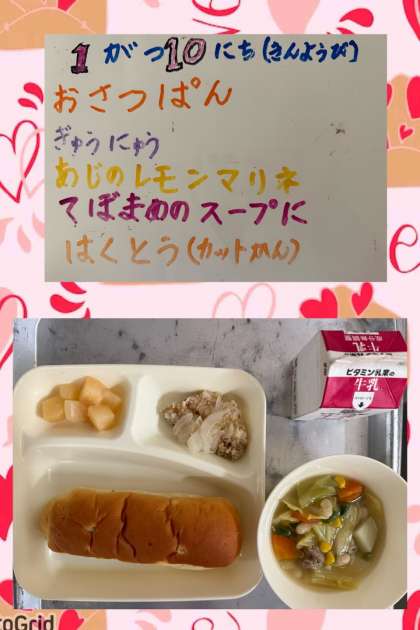 1がつ10にち(きんようび)
おさつぱん
ぎゅうにゅう
あじのレモンマリネ
てぼまめのスープに
はくとう(カットかん)
牛乳
ビタミン乳業の
牛乳
toGrid